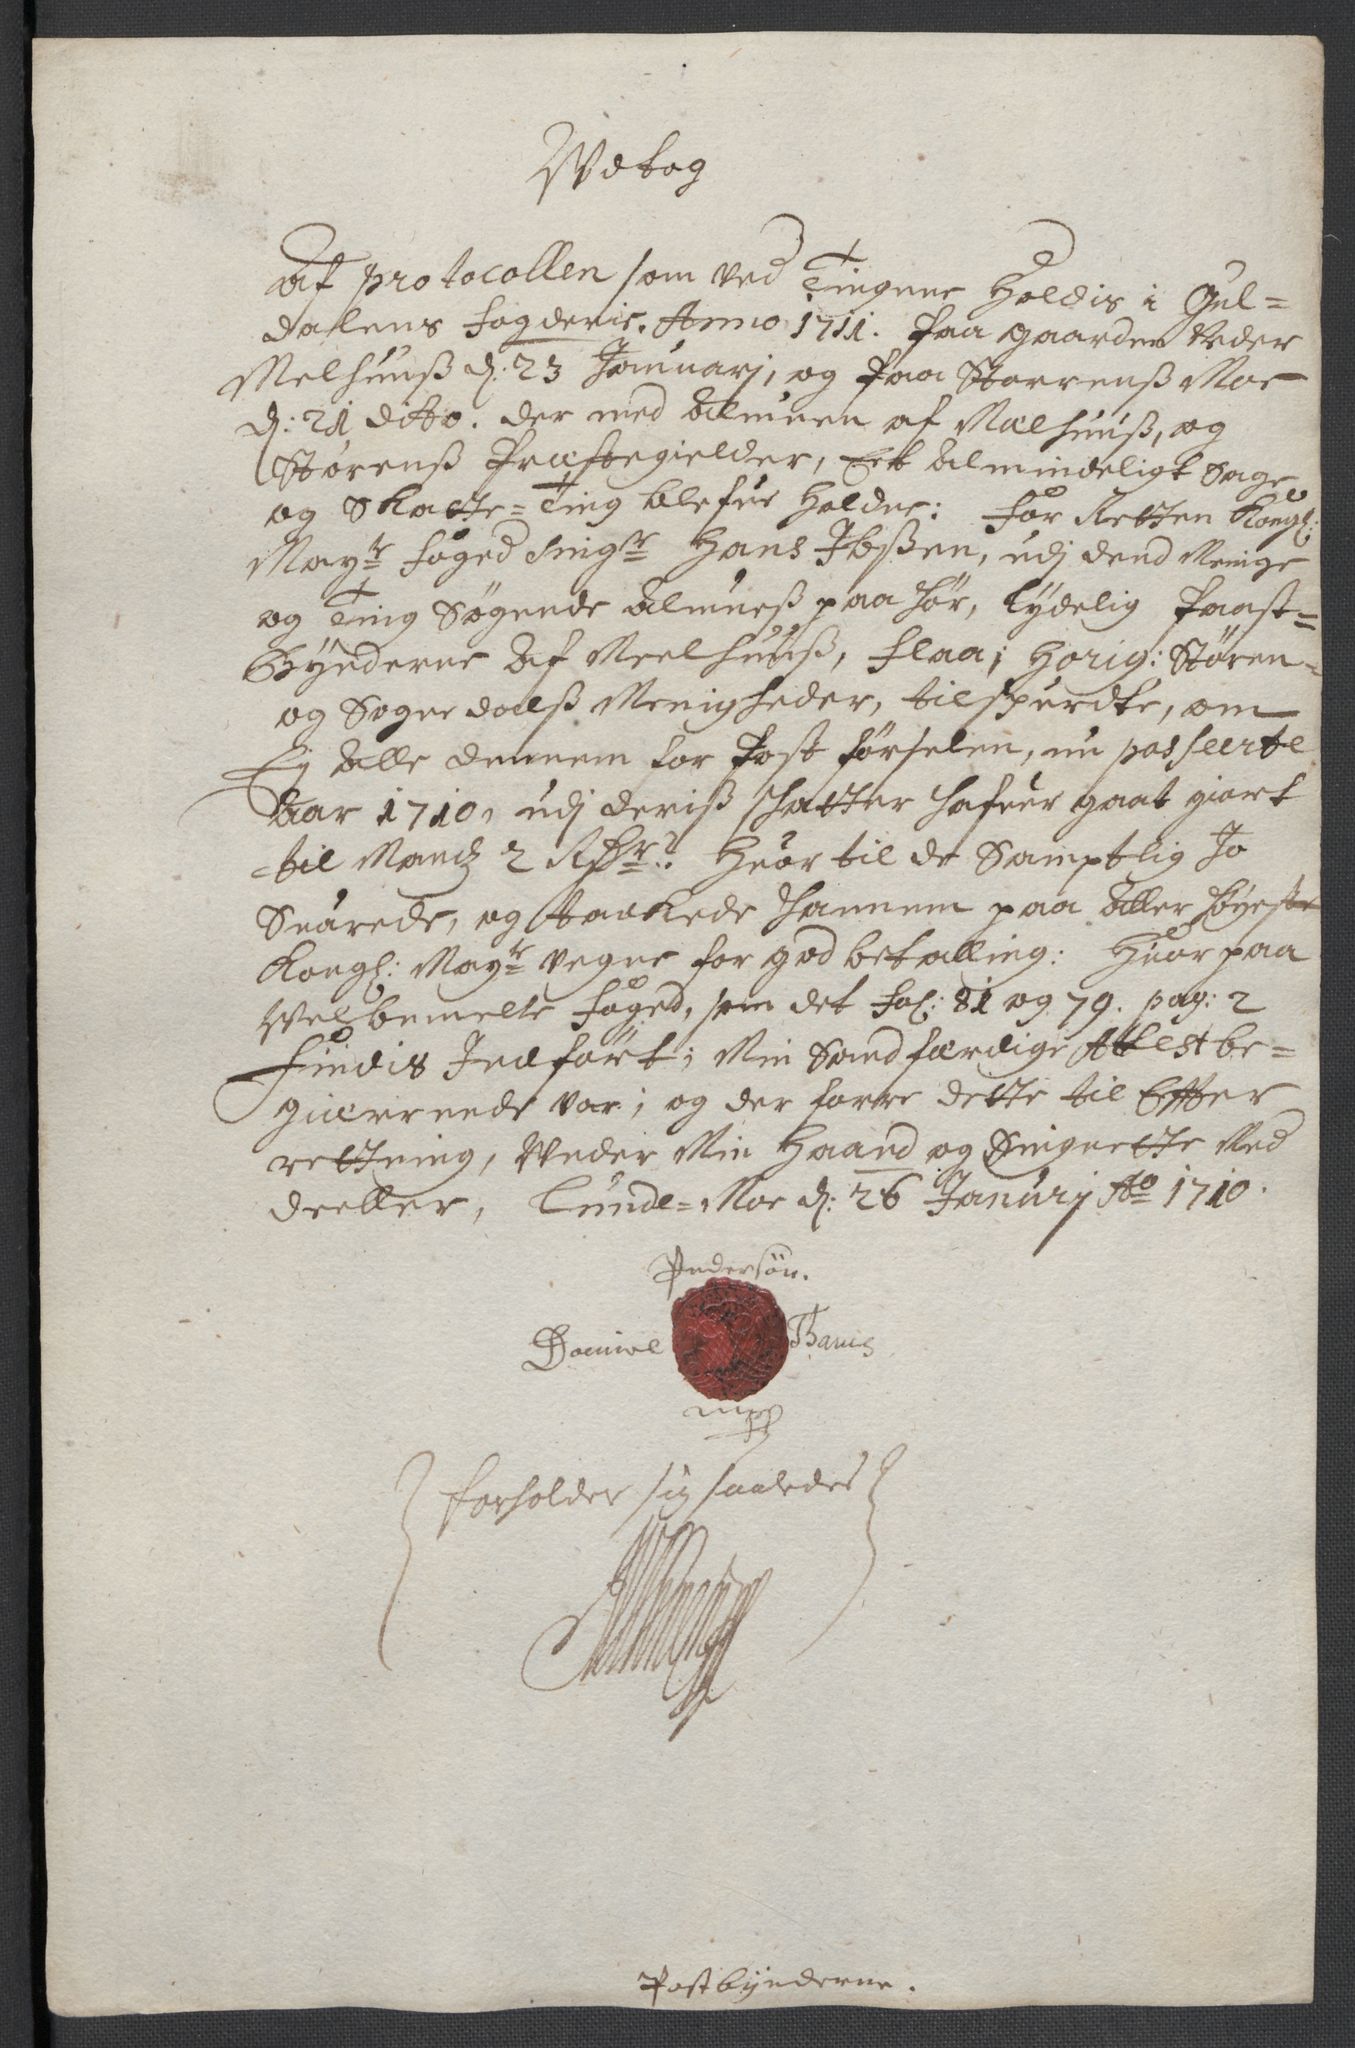 Wdtog
Af protocollen som ved Tingene Holdis i Gul=
dalens fogderie. Anno 1711. paa gaarden Øder
Melhuuß d: 23 Januarj, og paa Storrenß Moe
d: 21 ditto. der med Almuen af Mælhuuß, og
Størenß Præstegielder, Et Almindeligt Sage
og Skatte=Ting blefue Holden: for Retten Kongl:
Mayts foged Sigr Hans Ibßen, udj dend Menige
og Ting Søgende Almueß paahør, lydelig Paast=
Bynderne Af Meelhuuß, flaa; Horig: Støren=
og Sognedalß Menigheder, tilspurdte, om
Ej Alle dennem for Post førselen, nu passerte
Aar 1710, udj deriß schatter hafuer gaat giort
til Mandz 2 Rdr? Huortil de Samptlig Jo
Suarede, og tackede hannem paa Aller høyeste
Kongl: Mayts vegne for god betalling: Huorpaa
Welbemelte foged, som det fol: 81 og 79. pag: 2
findis Indført; Min Sandfærdige Attest be=
giærende var; og der forre dette til Effter
rettning, Under Min Haand og Signette Med
deeller, Lunde=Moe d: 26 Januarj Ao 1710.
Pedersøn.
Daniel
mpp
forholder sig saaledes
Postbynderne.